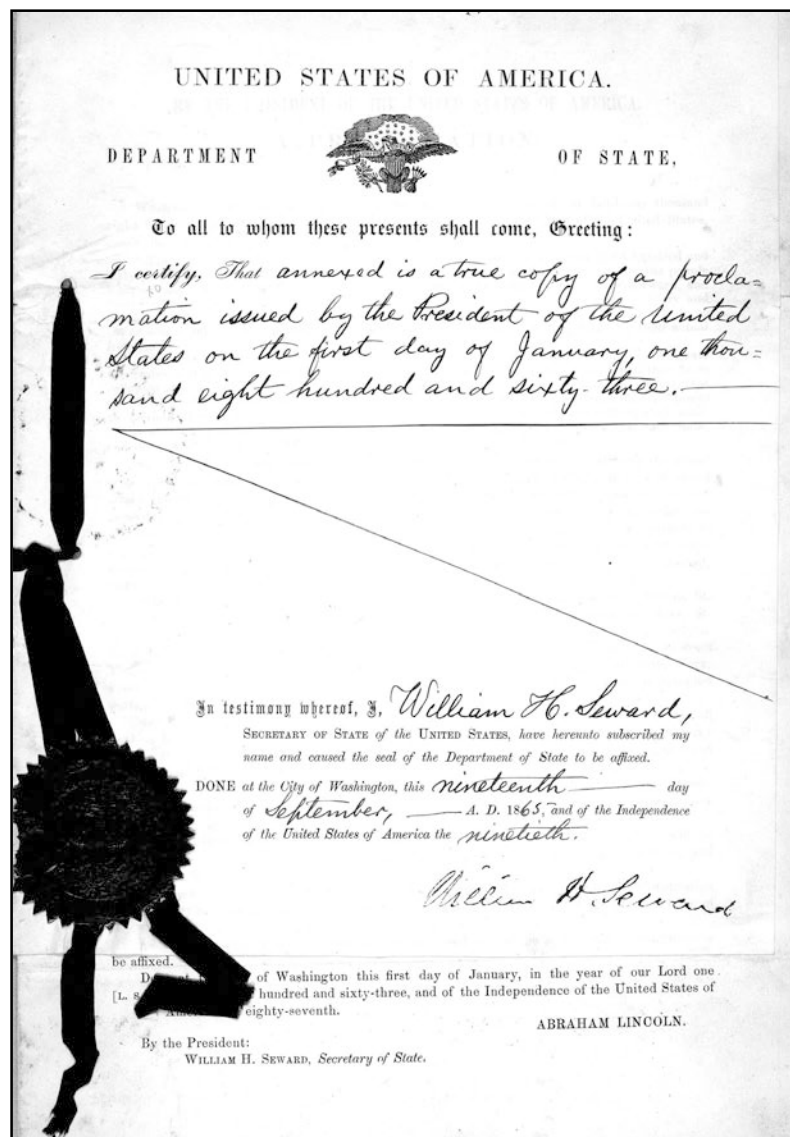 UNITED STATES OF AMERICA.
DEPARTMENT OF STATE,
To all to whom these presents shall come, Greeting:
I certify, That annexed is a true copy of a procla=
mation issued by the President of the United
States on the first day of January, one thou=
sand eight hundred and sixty-three.
In testimony whereof, I, William H. Seward,
SECRETARY OF STATE of the UNITED STATES, have hereunto subscribed my
name and caused the seal of the Department of State to be affixed.
DONE at the City of Washington, this nineteenth day
of September, A. D. 1865, and of the Independence
of the United States of America the ninetieth.
William H. Seward
be affixed.
of Washington this first day of January, in the year of our Lord one
[L. S. hundred and sixty-three, and of the Independence of the United States of
eighty-seventh.
ABRAHAM LINCOLN.
By the President:
WILLIAM H. SEWARD, Secretary of State.